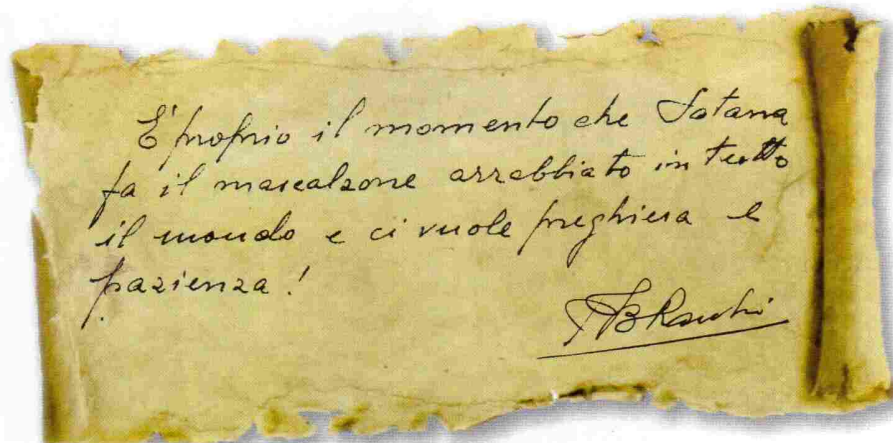 E' proprio il momento che Satana
fa il mascalzone arrabbiato in tutto
il mondo e ci vuole preghiera e
pazienza!